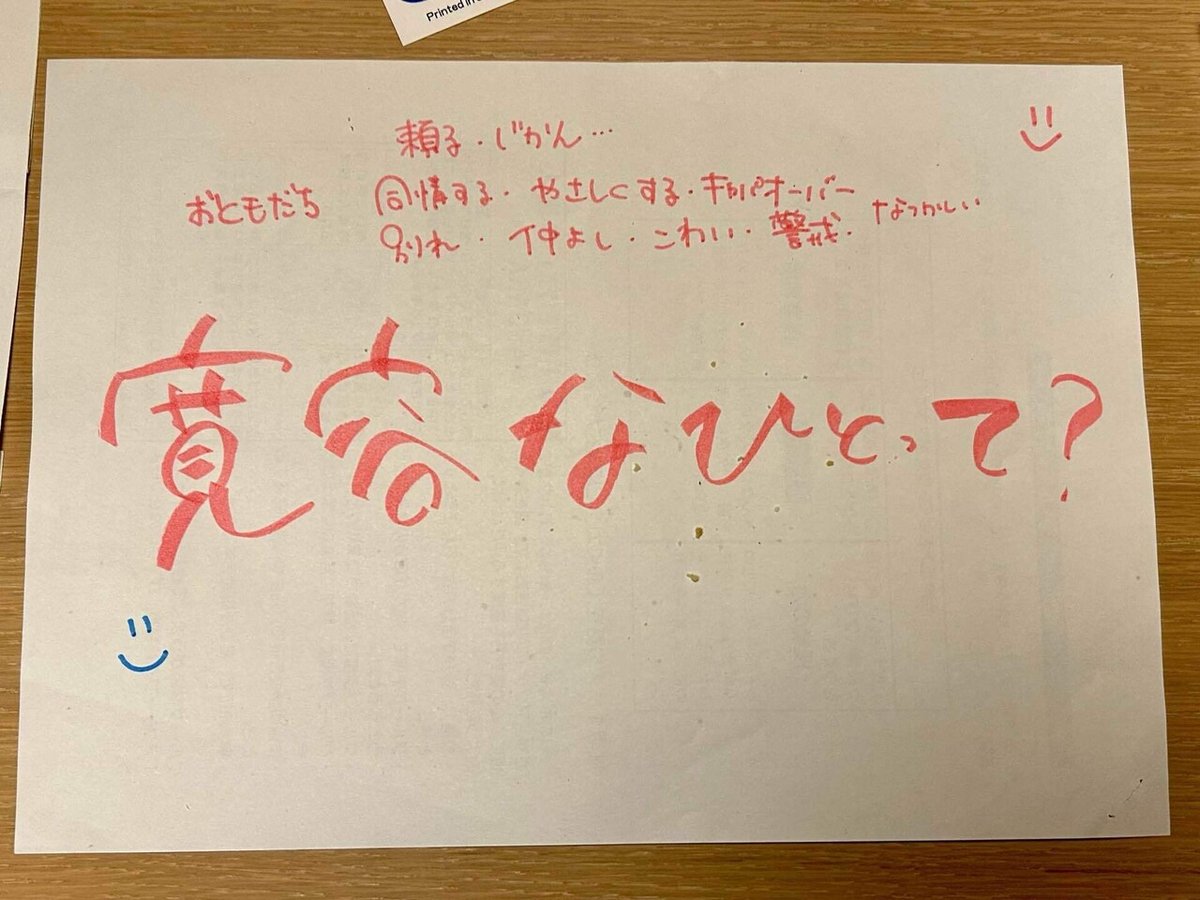 Printed in
頼子・じかん…
おともだち 同情する・やさしくする・キャパオーバー
別れ・仲よし・こわい・警戒・なつかしい
寛容なひとって?